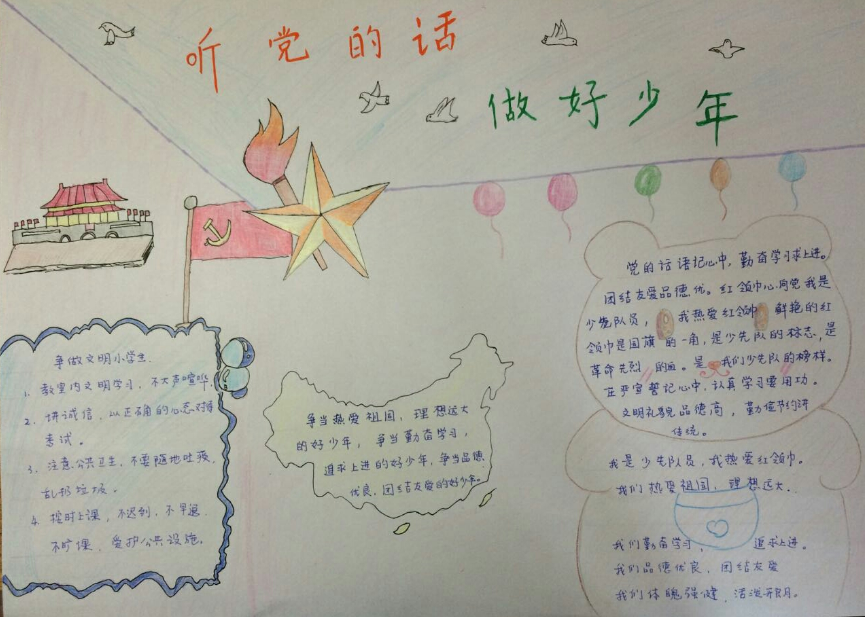 听党的话
做好少年
争做文明小学生.
1. 教室内文明学习, 不大声喧哗.
2. 讲诚信, 以正确的心态对待
考试。
3. 注意公共卫生, 不要随地吐痰,
乱扔垃圾。
4. 按时上课, 不迟到, 不早退
不旷课, 爱护公共设施.
争当热爱祖国、理想远大
的好少年, 争当勤奋学习,
追求上进的好少年, 争当品德
优良, 团结友爱的好少年。
党的话语记心中, 勤奋学习求上进。
团结友爱品德优。红领巾心向党我是
少先队员, 我热爱红领巾 鲜艳的红
领巾是国旗的一角, 是少先队的标志, 是
革命先烈 的 。是 我们少先队的榜样。
庄严宣誓记心中, 认真学习要用功。
文明礼貌品德高, 勤俭节约讲
传统。
我是少先队员, 我热爱红领巾。
我们热爱祖国, 理想远大.
我们勤奋学习, 追求上进。
我们品德优良, 团结友爱
我们体魄强健, 活泼开朗。